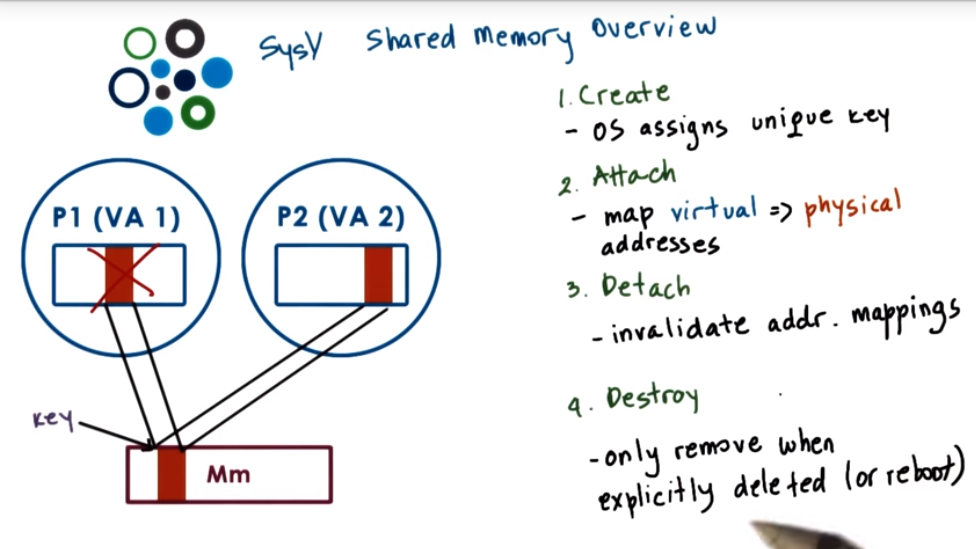 SysV Shared Memory Overview
1. Create
- OS assigns unique key
2. Attach
- map virtual => physical
addresses
3. Detach
- invalidate addr. mappings
4. Destroy
- only remove when
explicitly deleted (or reboot)
P1 (VA 1)
P2 (VA 2)
key
Mm